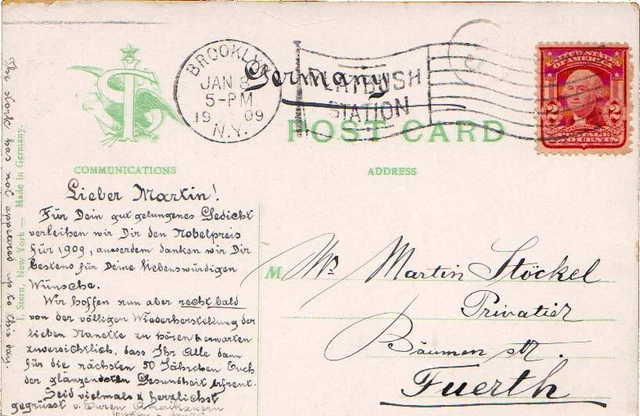 BROOKLYN
JAN 8
5-PM
19 09
N.Y.
FLATBUSH
STATION
Germany
POST CARD
UNITED STATES
OF AMERICA
2 2
POSTAGE
TWO CENTS
COMMUNICATIONS
ADDRESS
Lieber Martin!
Für Dein gut gelungenes Gedicht
verleihen wir Dir den Nobelpreis
für 1909, ausserdem danken wir Dir
bestens für Deine liebenswürdigen
Wünsche.
Wir hoffen nun aber recht bald
von der völligen Wiederherstellung der
lieben Nanette zu hören & erwarten
zuversichtlich, dass Ihr Alle dann
für die nächsten 50 Jährchen Euch
der glänzendsten Gesundheit erfreut.
Seid vielmals & herzlichst
gegrüsst v. Euren Amerikanern
M
Mr. Martin Stöckel
Privatier
Bäumen str.
Fuerth
I. Stern, New York — Made in Germany.
The stork has not appeared up to this day